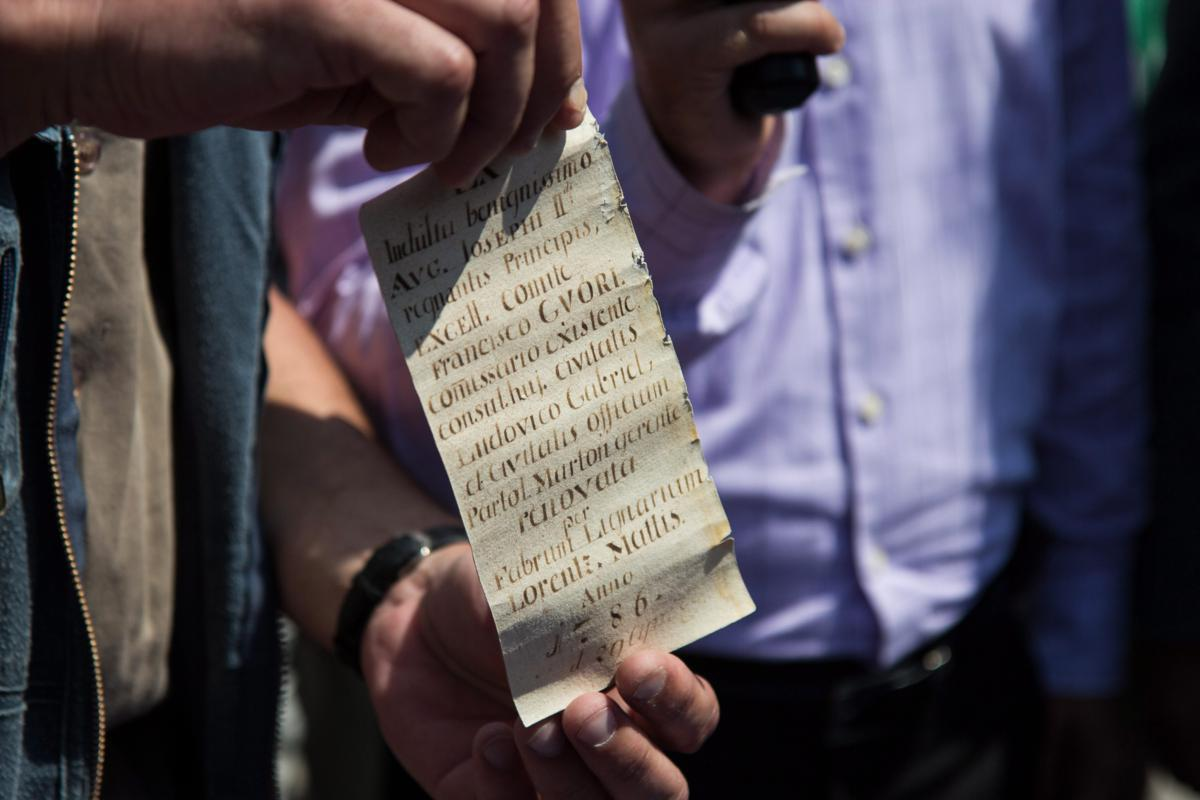 EX
Indultu benignissimo
AVG. IOSEPHI II di
regnantis Principis,
EXCELL. Comite
Francisco GYORI.
comissario existente
consul huj. civitatis
Ludovico Gabriel,
et civitatis officium
Partol. Marton gerente
renovata
per
Fabrum Lignarium
Lorentz. Mattis.
Anno
1786.